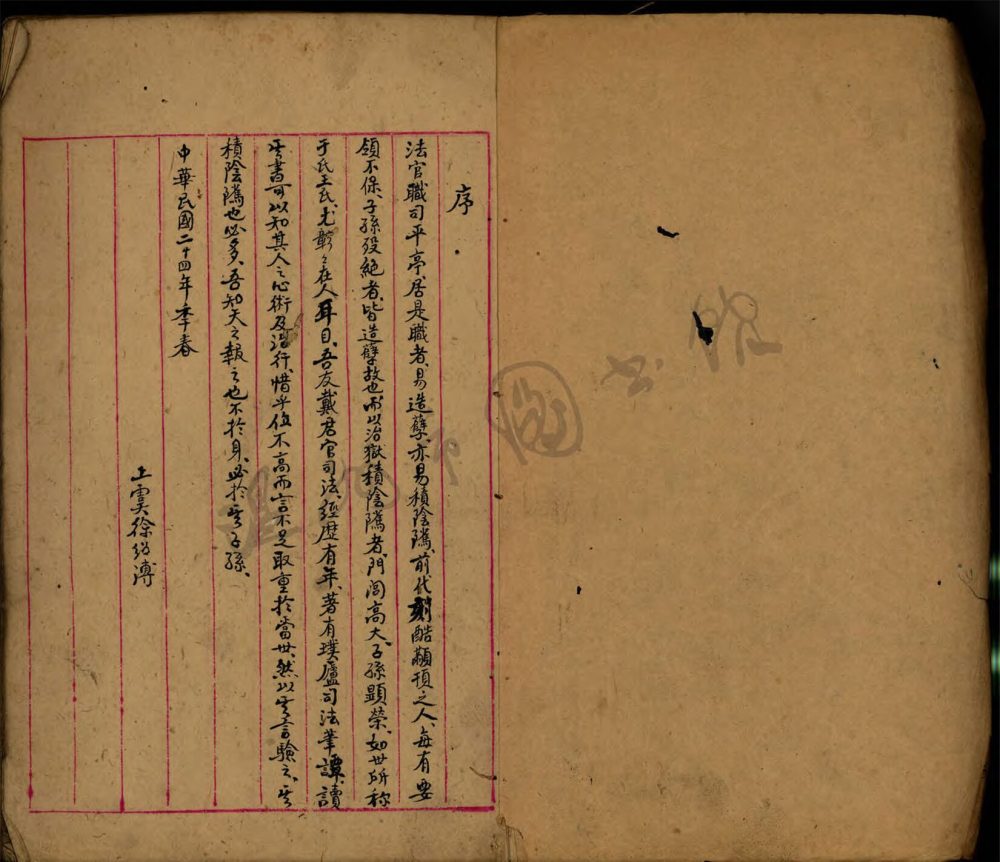 序
法官職司平亭、居是職者、易造孽、亦易積陰隲、前代刻酷顢頇之人、每有要
領不保、子孫殄絕者、皆造孽故也、而以治獄積陰隲者、門閭高大、子孫顯榮、如世所稱
于氏王氏、尤彰彰在人耳目、吾友戴君官司法、經歷有年、著有璞廬司法筆譚、讀
其書可以知其人之心術及治行、惜乎位不高而言不足取重於當世、然以其言驗之、其
積陰隲也必多、吾知天之報之也不於身、必於其子孫、
中華民國二十四年季春
上虞徐紹溥
圖書館